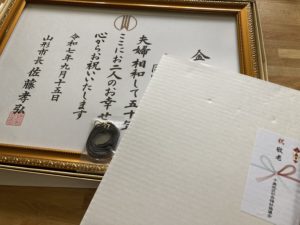 金
夫婦相和して五十
ここにお二人のお幸せ
心からお祝いいたします
令和七年九月十五日
山形市長 佐藤孝弘
祝 敬老